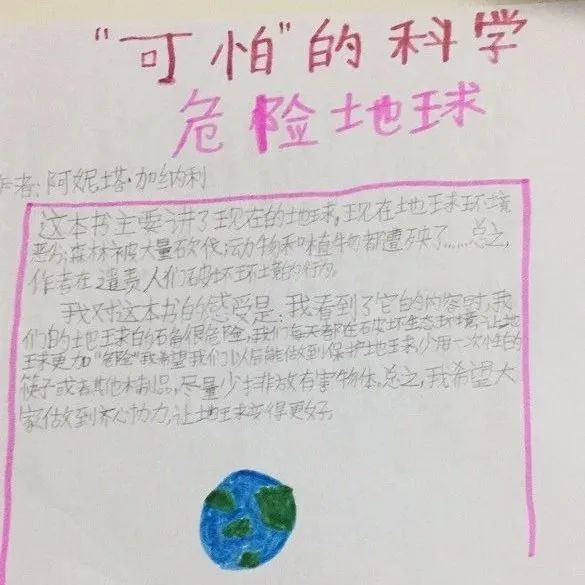 “可怕”的科学
危险地球
作者：阿妮塔·加纳利
这本书主要讲了现在的地球，现在地球环境
恶劣，森林被大量砍伐，动物和植物都遭殃了……总之，
作者在谴责人们破坏环境的行为。
我对这本书的感受是：我看到了它的内容时，我
们的地球的确很危险，我们每天都在破坏生态环境，让地
球更加“危险”我希望我们以后能做到保护地球，少用一次性的
筷子或者其他木制品，尽量少排放有害物体。总之，我希望大
家做到齐心协力，让地球变得更好。